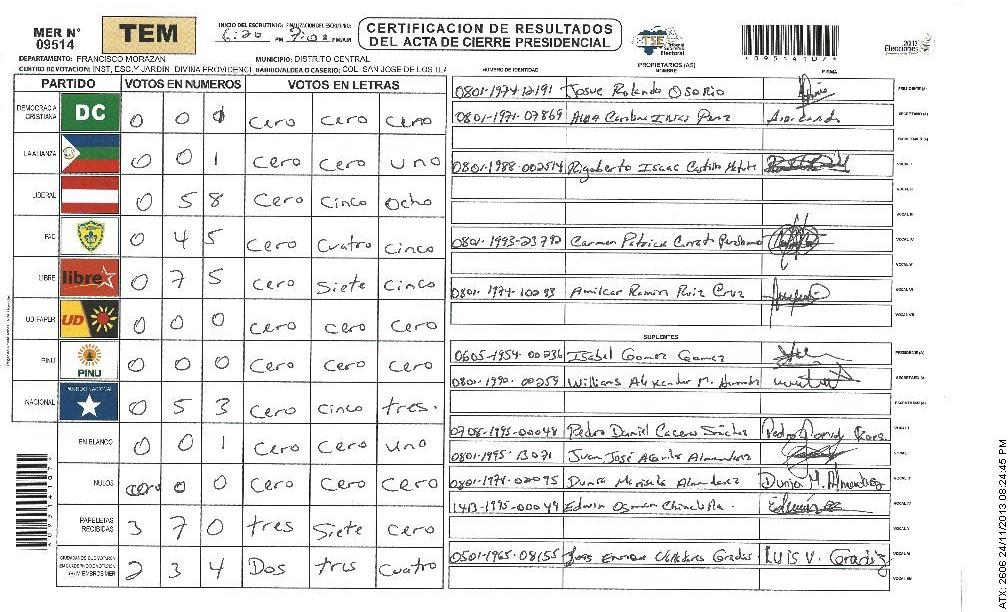 MER N° 09514
TEM
INICIO DEL ESCRUTINIO: 6:20 PM
7:02 PM/AM
CERTIFICACION DE RESULTADOS
DEL ACTA DE CIERRE PRESIDENCIAL
TSE Tribunal Supremo Electoral
Elecciones 2013
DEPARTAMENTO: FRANCISCO MORAZAN
MUNICIPIO: DISTRITO CENTRAL
CENTRO DE VOTACION: INST, ESC.Y JARDIN DIVINA PROVIDENCI
BARRIO/ALDEA O CASERIO: COL. SAN JOSE DE LOS LLA
PARTIDO VOTOS EN NUMEROS VOTOS EN LETRAS
DEMOCRACIA CRISTIANA DC 0 0 0 Cero Cero Cero
LA ALIANZA 0 0 1 Cero Cero uno
LIBERAL 0 5 8 Cero Cinco Ocho
PAC 0 4 5 Cero Cuatro Cinco
LIBRE libre 0 7 5 Cero Siete Cinco
UD/FAPER UD 0 0 0 Cero cero Cero
PINU PINU 0 0 0 Cero Cero Cero
NACIONAL PARTIDO NACIONAL 0 5 3 Cero Cinco tres.
EN BLANCO 0 0 1 Cero Cero uno
NULOS cero 0 0 Cero Cero Cero
PAPELETAS RECIBIDAS 3 7 0 tres Siete Cero
2 3 4 Dos tres Cuatro
NUMERO DE IDENTIDAD
PROPIETARIOS (AS)
NOMBRE
FIRMA
*095141077*
0801-1974-12191 Josue Rolando Osorio PRESIDENTE (A)
0801-1971-07869 SECRETARIO (A)
0801-1988-002514 Rigoberto Isaac Castillo VOCAL I
VOCAL II
VOCAL III
0801-1993-23792 Carmen Patricia Perdomo VOCAL IV
VOCAL V
0801-1974-10293 Amilcar Ramon Ruiz Cruz VOCAL VI
VOCAL VII
SUPLENTES
0605-1954-00236 Isabel Gomez Gomez PRESIDENTE (A)
0801-1990-00259 Williams Alexander M. SECRETARIO (A)
ESCRUTADOR (A)
0708-1995-00048 Pedro Daniel VOCAL I
0801-1995-13071 Juan José Aguilar Almendarez
0801-1971-02095 Dunia Marisela Almendarez Dunia M. Almendarez
1413-1995-00049 Edwin Osman Chinchilla VOCAL IV
VOCAL V
0501-1965-08155 Luis Enrique Valladares LUIS V. VOCAL VI
ATX: 2606 24/11/2013 08:24:45 PM